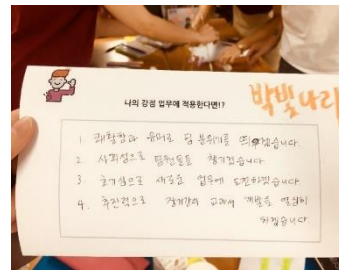 나의 강점 업무에 적용한다면!?
박빛나리
1. 쾌활함과 유머로 팀 분위기를 띄우겠습니다.
2. 사회성으로 팀원들을 챙기겠습니다
3. 호기심으로 새로운 업무에 도전하겠습니다
4. 추진력으로 교과서 개발을 열심히
하겠습니다